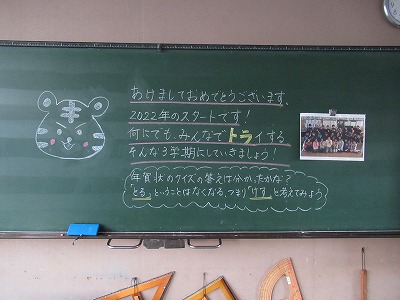 あけましておめでとうございます。
2022年のスタートです!
何にでも、みんなでトライする
そんな3学期にしていきましょう!
年賀状のクイズの答えは分かったかな?
"とる"ということはなくなる、つまり"けす"と考えてみよう